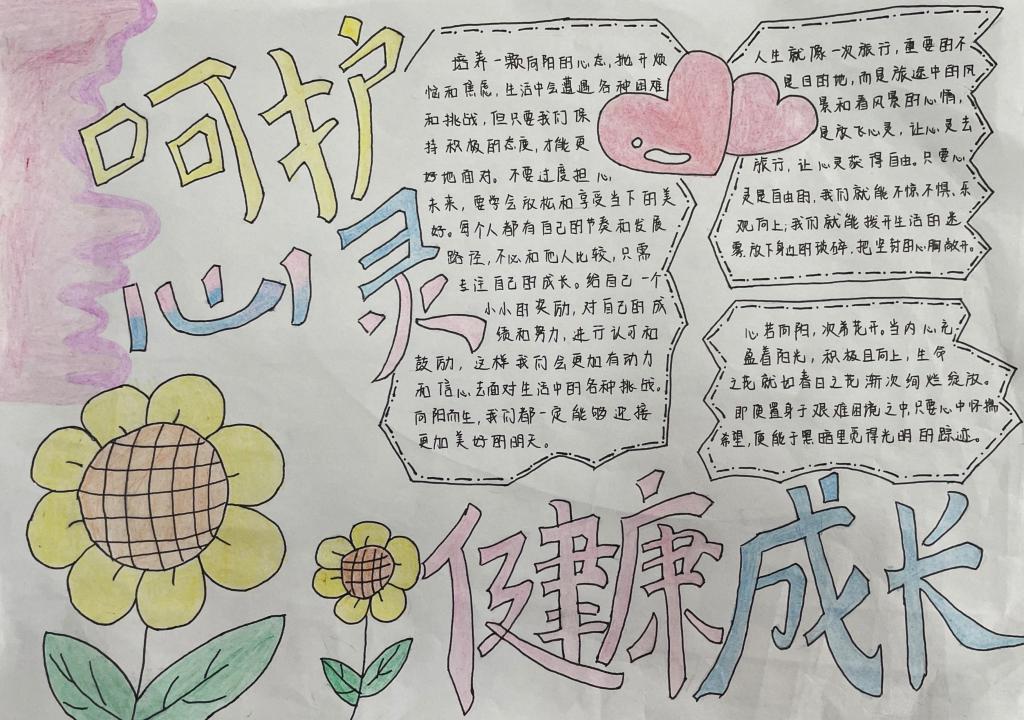 呵护
心灵
培养一颗向阳的心态,抛开烦
恼和焦虑,生活中会遭遇各种困难
和挑战,但只要我们保
持积极的态度,才能更
好地面对。不要过度担心
未来,要学会放松和享受当下的美
好。每个人都有自己的节奏和发展
路径,不必和他人比较,只需
去注自己的成长。给自己一个
小小的奖励,对自己的成
绩和努力,进行认可和
鼓励,这样我们会更加有动力
和信心去面对生活中的各种挑战。
向阳而生,我们都一定能够迎接
更加美好的明天。
人生就像一次旅行,重要的不
是目的地,而是旅途中的风
景和看风景的心情,
是放飞心灵,让心灵去
旅行,让心灵获得自由。只要心
灵是自由的,我们就能不惊不惧,乐
观向上;我们就能拨开生活的迷
雾,放下身边的琐碎,把坚封的心胸敞开。
心若向阳,次第花开。当内心充
盈着阳光,积极且向上,生命
之花就如春日之花渐次绚烂绽放。
即便置身于艰难困境之中,只要心中怀揣
希望,便能于黑暗里觅得光明的踪迹。
健康成长